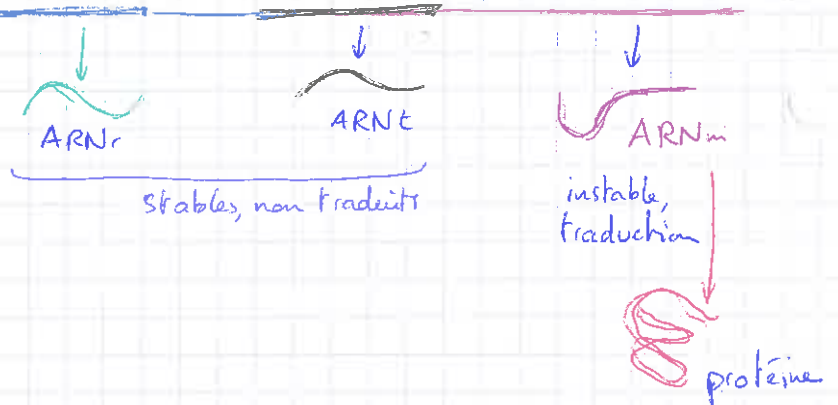 ARNr
ARNt
ARNm
stables, non traduits
instable,
traduction
protéine